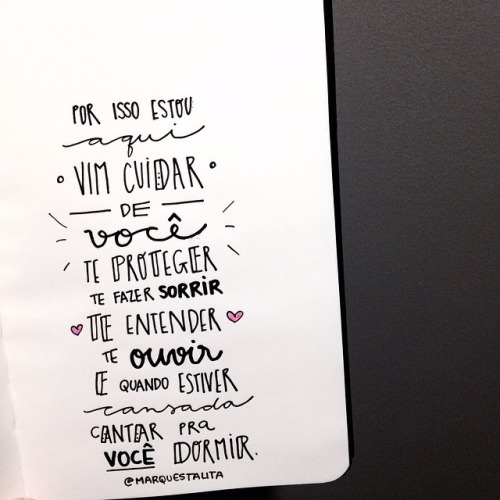 POR ISSO ESTOU
aqui
VIM CUIDAR
DE
você
TE PROTEGER
TE FAZER SORRIR
TE ENTENDER
TE ouvir
E QUANDO ESTIVER
cansada
CANTAR PRA
VOCÊ DORMIR.
@MARQUESTALITA